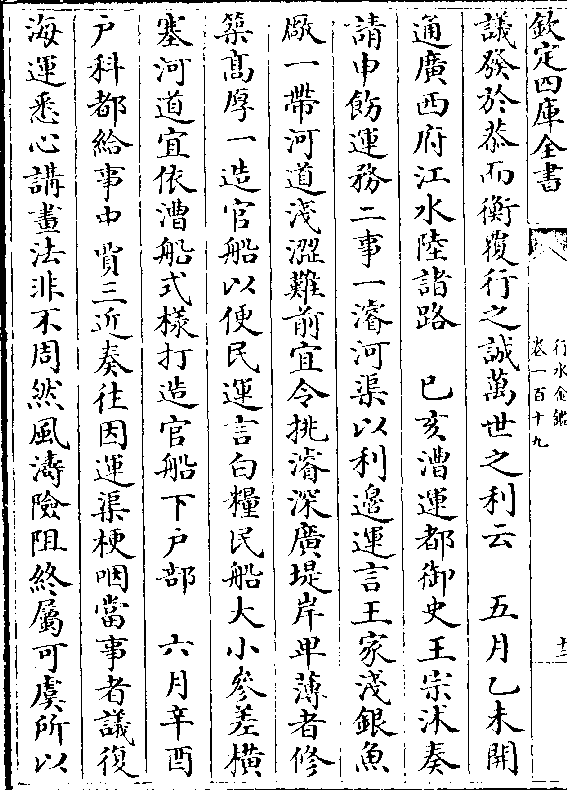 欽定四庫全書
行水金鑑
卷一百十九
十二
議發於㳟而衡覆行之誠萬世之利云　五月乙未開
通廣西府江水陸諸路　己亥漕運都御史王宗沐奏
請申飭運務二事一濬河渠以利邊運言王家淺銀魚
厰一帶河道淺澀難前宜令挑濬深廣堤岸卑薄者修
築髙厚一造官船以便民運言白糧民船大小參差橫
塞河道宜依漕船式樣打造官船下户部　六月辛酉
户科都給事中賈三近奏往因運渠梗咽當事者議復
海運悉心講畫法非不周然風濤險阻終屬可虞所以